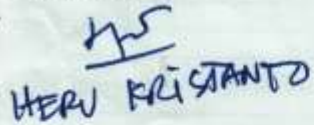 HERU KRiSTANTO